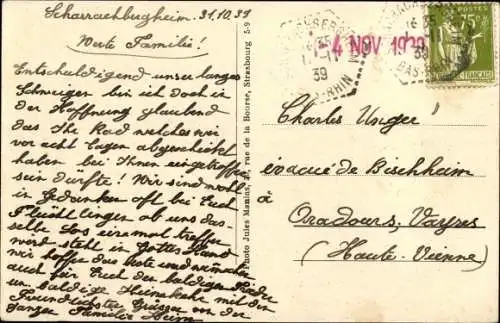 Scharrachbergheim. 31.10.39
Werte Familie!
Entschuldigend unser langes
Schweigen bin ich doch in
der Hoffnung glaubend
das Ihr Rad welches wir
vor acht Tagen abgeschickt
haben bei Ihnen eingetroffen
sein dürfte! Wir sind wohl
in Gedanken oft bei Euch
Flüchtlingen ob uns das-
selbe Los einmal treffen
word steht in Gottes Hand
wir hoffen das beste und wünschen
auch für Euch der baldigen Friede
un baldige Heimkehr mit den
Freundlichsten Grüssen von der
ganzen Familie Heim
Photo Jules Manias, rue de la Bourse, Strasbourg 5-9
-4 NOV 1939
39
BAS-RHIN
POSTES
75c
Charles Unger
évacué de Bischheim
à
Oradours, Vayres
(Haute-Vienne)